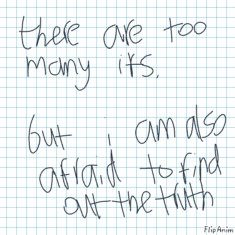 there are too
many ifs.
but i am also
afraid to find
out the truth
FlipAnim